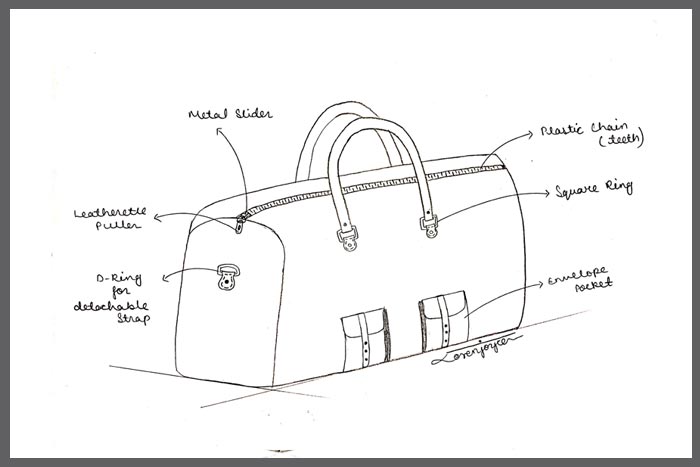 Metal Slider
Plastic Chain
(teeth)
Leatherette
Puller
Square Ring
D-Ring
for
detachable
Strap
Envelope
Pocket